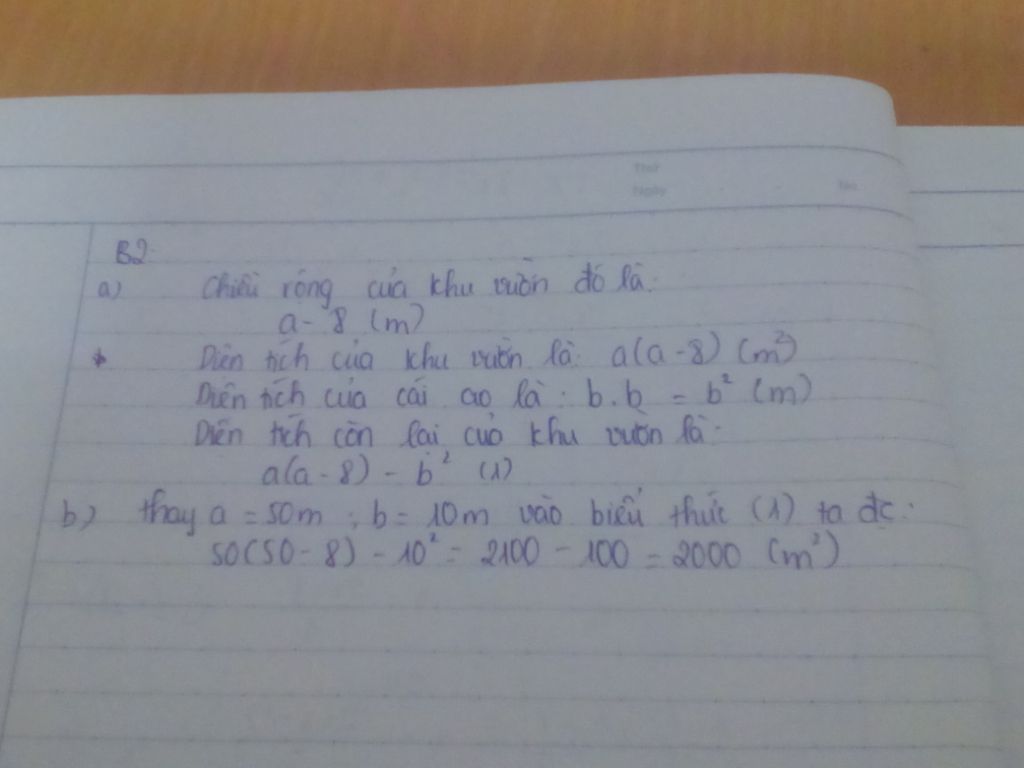 Thứ
Ngày No.
B2.
a) Chiều rộng của khu vườn đó là:
a - 8 (m)
Diện tích của khu vườn là: a(a - 8) (m²)
Diện tích của cái ao là: b.b = b² (m)
Diện tích còn lại của khu vườn là:
a(a - 8) - b² (1)
b) thay a = 50m ; b = 10m vào biểu thức (1) ta đc:
50(50 - 8) - 10² = 2100 - 100 = 2000 (m²)